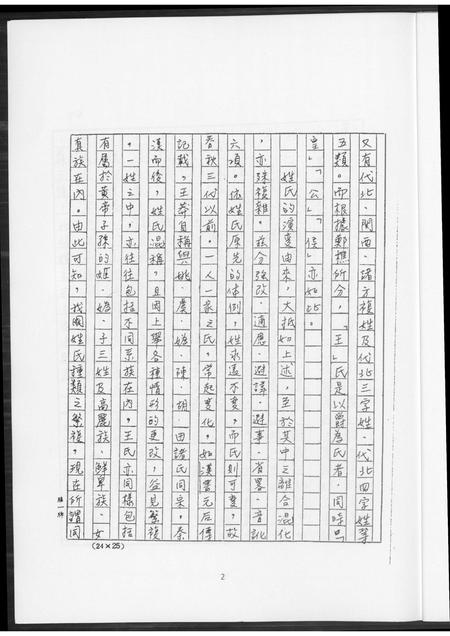 又有代北、關西、諸方複姓及代北三字姓、代北四字姓等
五類。而根據鄭樵所分,「王」氏是以爵為氏者,同時
皇」「公」「侯」亦如此。
姓氏的演變由來,大抵如上述,至於其中之離合混化
,亦殊複雜。茲分強改、適應、避諱、避事、省畧、音訛
六項。依姓氏原先的体例,姓永遠不變,而氏則可變,故
春秋三代以前。一人一家之氏,常起變化,如漢書元后傳
記載,王莽自稱與姚、虞、媯、陳、胡、田諸氏同宗。秦
漢而後,姓氏混稱,且因上舉各種情形的更改,益見繁複
。一姓之中,亦往往包括不同系族在內。王氏亦同樣包括
有屬於黃帝子孫的姬、媯、子三姓及高麗族、鮮卑族、女
真族在內。由此可知,我國姓氏種類之繁複,現在所謂同
(24×25)
2